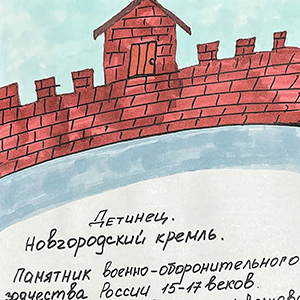 Детинец.
Новгородский кремль.
Памятник военно-оборонительного
зодчества России 15-17 веков.